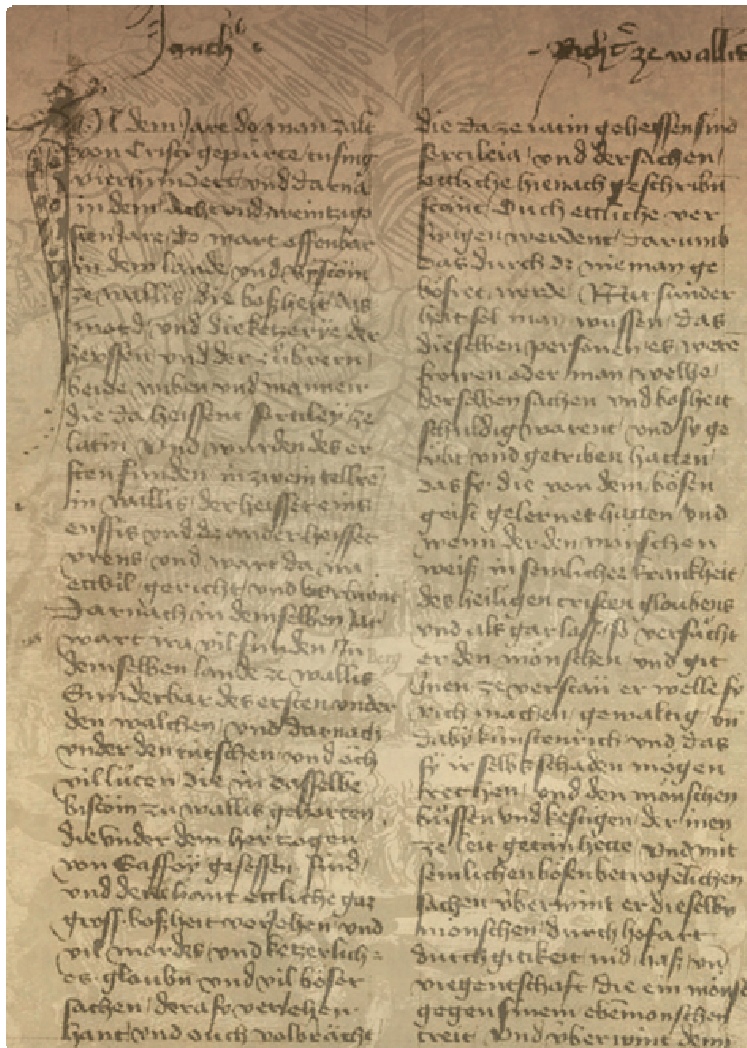 ze wallis
IN dem Jare do man zalt
von Cristi gepürte tusing
vierhundert und darna
in dem acht und
sten Jare do wart offenbar
in dem lande und Bystom
ze wallis die boßheit das
mord und die ketzerye der
hexssen und der
beide wiben und mannen
die da heissent sortiley ze
latin und wurden des er
sten funden in zwein tellren
in wallis der heisset eins
enffis und der ander heisset
urens und wart da ira
ettwil gericht und verbrönt
Darnach in demselben Jar
wart ira vil funden In
demselben lande ze wallis
Sunderbar des ersten under
den walchen und darnach
under den tutschen und och
vil lüten die in dasselbe
bistom zu wallis gehorten
die under dem hertzogen
von Saffoy gesessen sind
und der hant ettliche gar
gross boßheit verjehen und
vil mordes und ketzerlich
es gloubn und vil böser
sachen der sy verjehen
hant und ouch volbracht
die da ze latin geheissen sind
sortileia und der sachen
ettliche hienach geschribn
stant Ouch ettliche ver
swigen werdent darumb
das durch dz nieman ge
bösret werde Nit sunder
heit sol man wussen das
dieselben personen es were
frowen oder man welhe
derselben sachen und bosheit
schuldig warent und sy ge
übt und getriben hatten
das sy die von dem bösen
geist gelernet hatten und
wenn der den mönschen
weiß in semlicher krankheit
des heiligen cristen gloubens
und als gar laß so versücht
er den mönschen und git
Inen ze verstan er welle sy
rich machen gewaltig und
daby künstenrich und das
sy ir selbs schaden mögen
rechen und den mönschen
büssen und kestigen der inen
ze leit getan hette Und mit
semlichen bösen betrogelichen
sachen überwint er dieselbn
mönschen durch hofart
durch gitikeit nid haß und
viegentschaft die ein mönsch
gegen sinem ebenmönschen
treit Und überwint denn